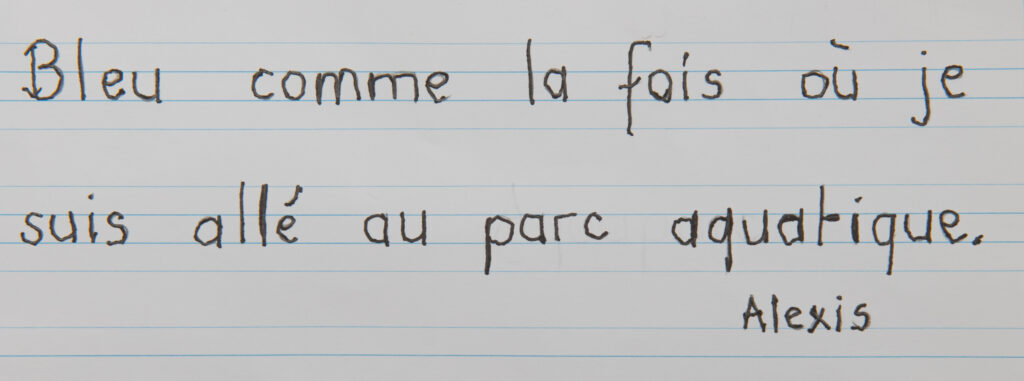 Bleu comme la fois où je
suis allé au parc aquatique.
Alexis